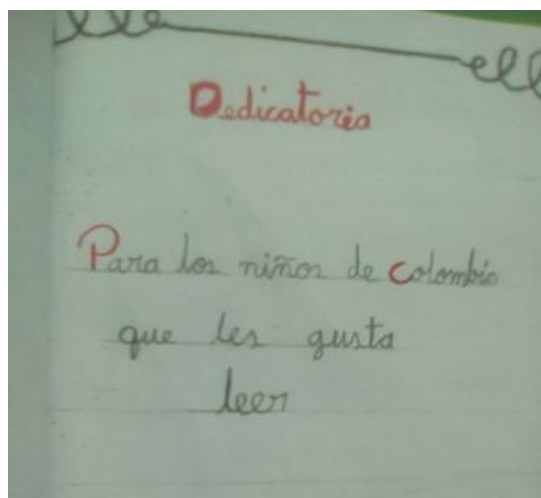 Dedicatoria
Para los niños de colombia
que les gusta
leer